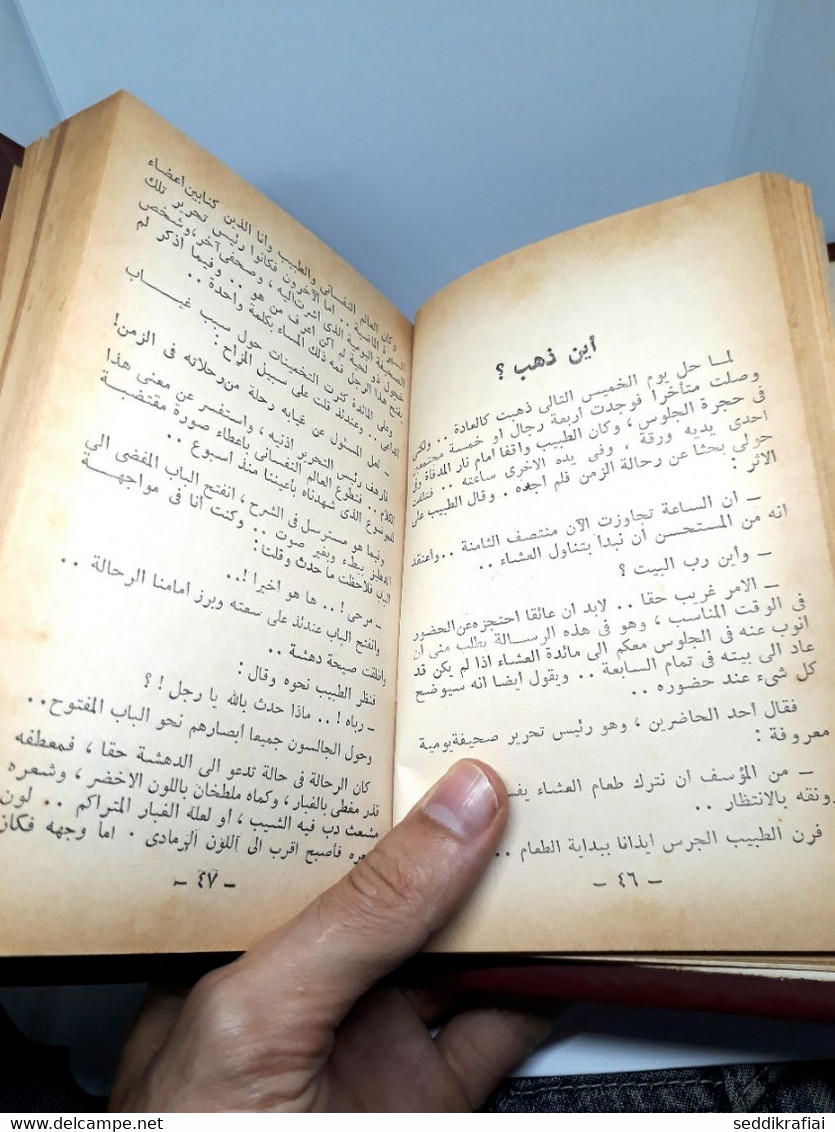 أين ذهب ؟
لما حل يوم الخميس التالى ذهبت كالعادة .. ولكنى
وصلت متأخرا فوجدت اربعة رجال او خمسة مجتمعين
فى حجرة الجلوس ، وكان الطبيب واقفا امام نار المدفأة وفى
احدى يديه ورقة ، وفى يده الاخرى ساعته .. فتلفت
حولى بحثا عن رحالة الزمن فلم اجده . وقال الطبيب على
الاثر :
ـ ان الساعة تجاوزت الآن منتصف الثامنة .. واعتقد
انه من المستحسن أن نبدأ بتناول العشاء ..
ـ واين رب البيت ؟
ـ الامر غريب حقا .. لابد ان عائقا احتجزه عن الحضور
فى الوقت المناسب ، وهو فى هذه الرسالة يطلب منى ان
انوب عنه فى الجلوس معكم الى مائدة العشاء اذا لم يكن قد
عاد الى بيته فى تمام السابعة .. ويقول ايضا انه سيوضح
كل شىء عند حضوره ..
فقال احد الحاضرين ، وهو رئيس تحرير صحيفة يومية
معروفة :
ـ من المؤسف ان نترك طعام العشاء يفسد
رونقه بالانتظار ..
فرن الطبيب الجرس ايذانا ببداية الطعام ..
ـ ٤٦ ـ
وكان العالم النفسانى والطبيب وانا الذين كنا بين أعضاء
السهرة الماضية .. اما الآخرون فكانوا رئيس تحرير تلك
الصحيفة اليومية الذى اشرت اليه ، وصحفى آخر ، وشخص
خجول ذو لحية لم اكن اعرف من هو .. وفيما أذكر لم
يفتح هذا الرجل فمه ذلك المساء بكلمة واحدة ..
وعلى المائدة كثرت التخمينات حول سبب غياب
الداعى .. وعندئذ قلت على سبيل المزاح :
ـ لعل المسئول عن غيابه رحلة من رحلاته فى الزمن !
فأرهف رئيس التحرير اذنيه ، واستفسر عن معنى هذا
الكلام .. فتطوع العالم النفسانى بأعطاء صورة مقتضبة
للموضوع الذى شهدناه بأعيننا منذ أسبوع ..
وفيما هو مسترسل فى الشرح ، انفتح الباب المفضى الى
الدهليز ببطء وبغير صوت .. وكنت أنا فى مواجهة
الباب فلاحظت ما حدث وقلت :
ـ مرحى ! .. ها هو اخيرا ! ..
وانفتح الباب عندئذ على سعته وبرز أمامنا الرحالة ..
وانفلقت صيحة دهشة ..
فنظر الطبيب نحوه وقال :
ـ رباه ! .. ماذا حدث بالله يا رجل ! ؟
وحول الجالسون جميعا أبصارهم نحو الباب المفتوح ..
كان الرحالة فى حالة تدعو الى الدهشة حقا ، فمعطفه
قذر مغطى بالغبار ، وكماه ملطخان باللون الاخضر ، وشعره
مشعث دب فيه الشيب ، أو لعله الغبار المتراكم .. لون
شعره فأصبح اقرب الى اللون الرمادى . اما وجهه فكان
ـ ٤٧ ـ
seddikrafiai